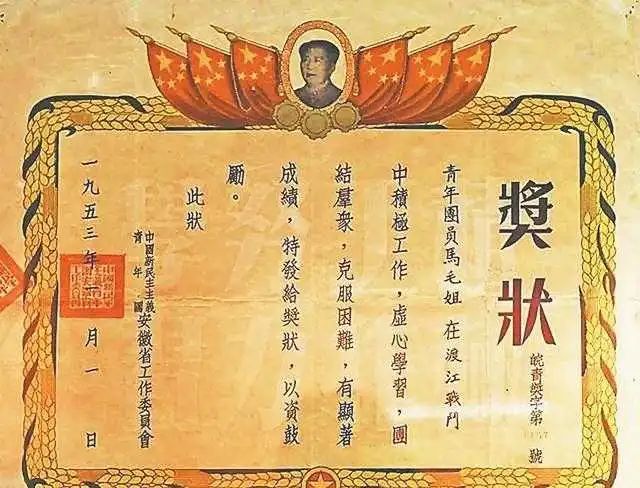 獎狀
皖青奬字第 號
青年團員馬毛姐 在渡江戰鬥
中積極工作，虛心學習，團
結羣衆，克服困難，有顯著
成績，特發給獎狀，以資鼓
勵。
此狀
中國新民主主義青年團安徽省工作委員會
一九五三年一月一日